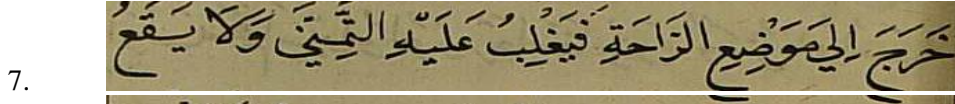 خَرَجَ إِلَى مَوْضِعِ الرَّاحَةِ فَيَغْلِبُ عَلَيْهِ التَّمَنِّي وَلَا يَسَعُ
7.